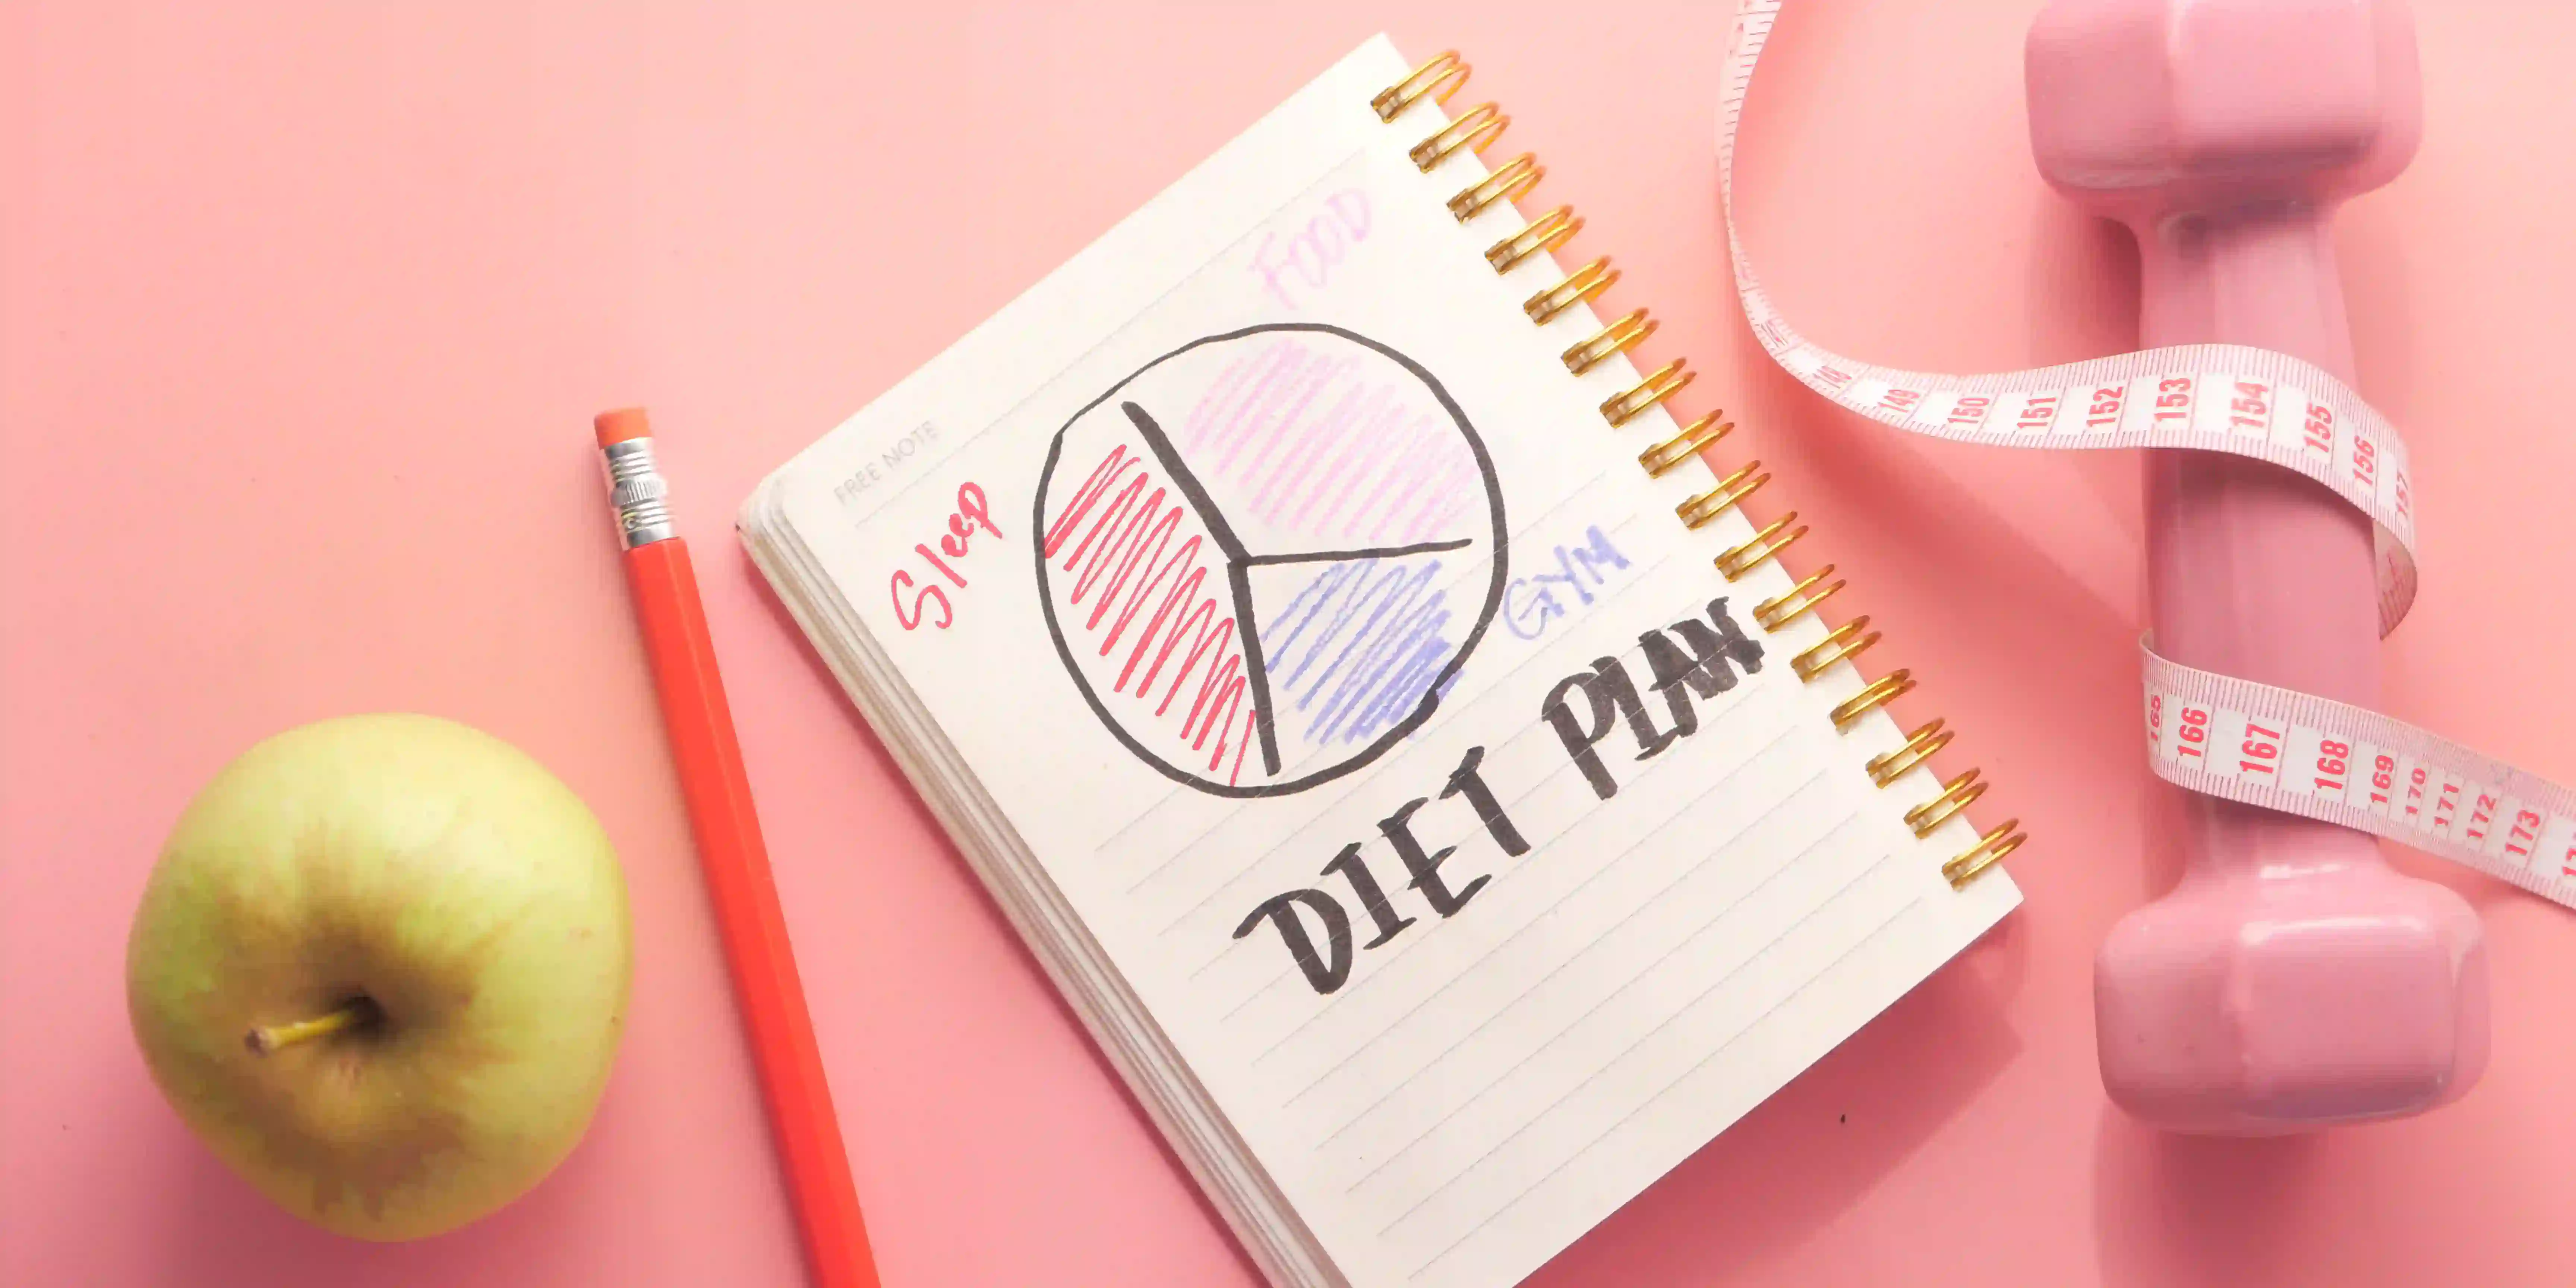 FOOD
FREE NOTE
Sleep
GYM
DIET PLAN
148 149 150 151 152 153 154 155 156 157
165 166 167 168 169 170 171 172 173